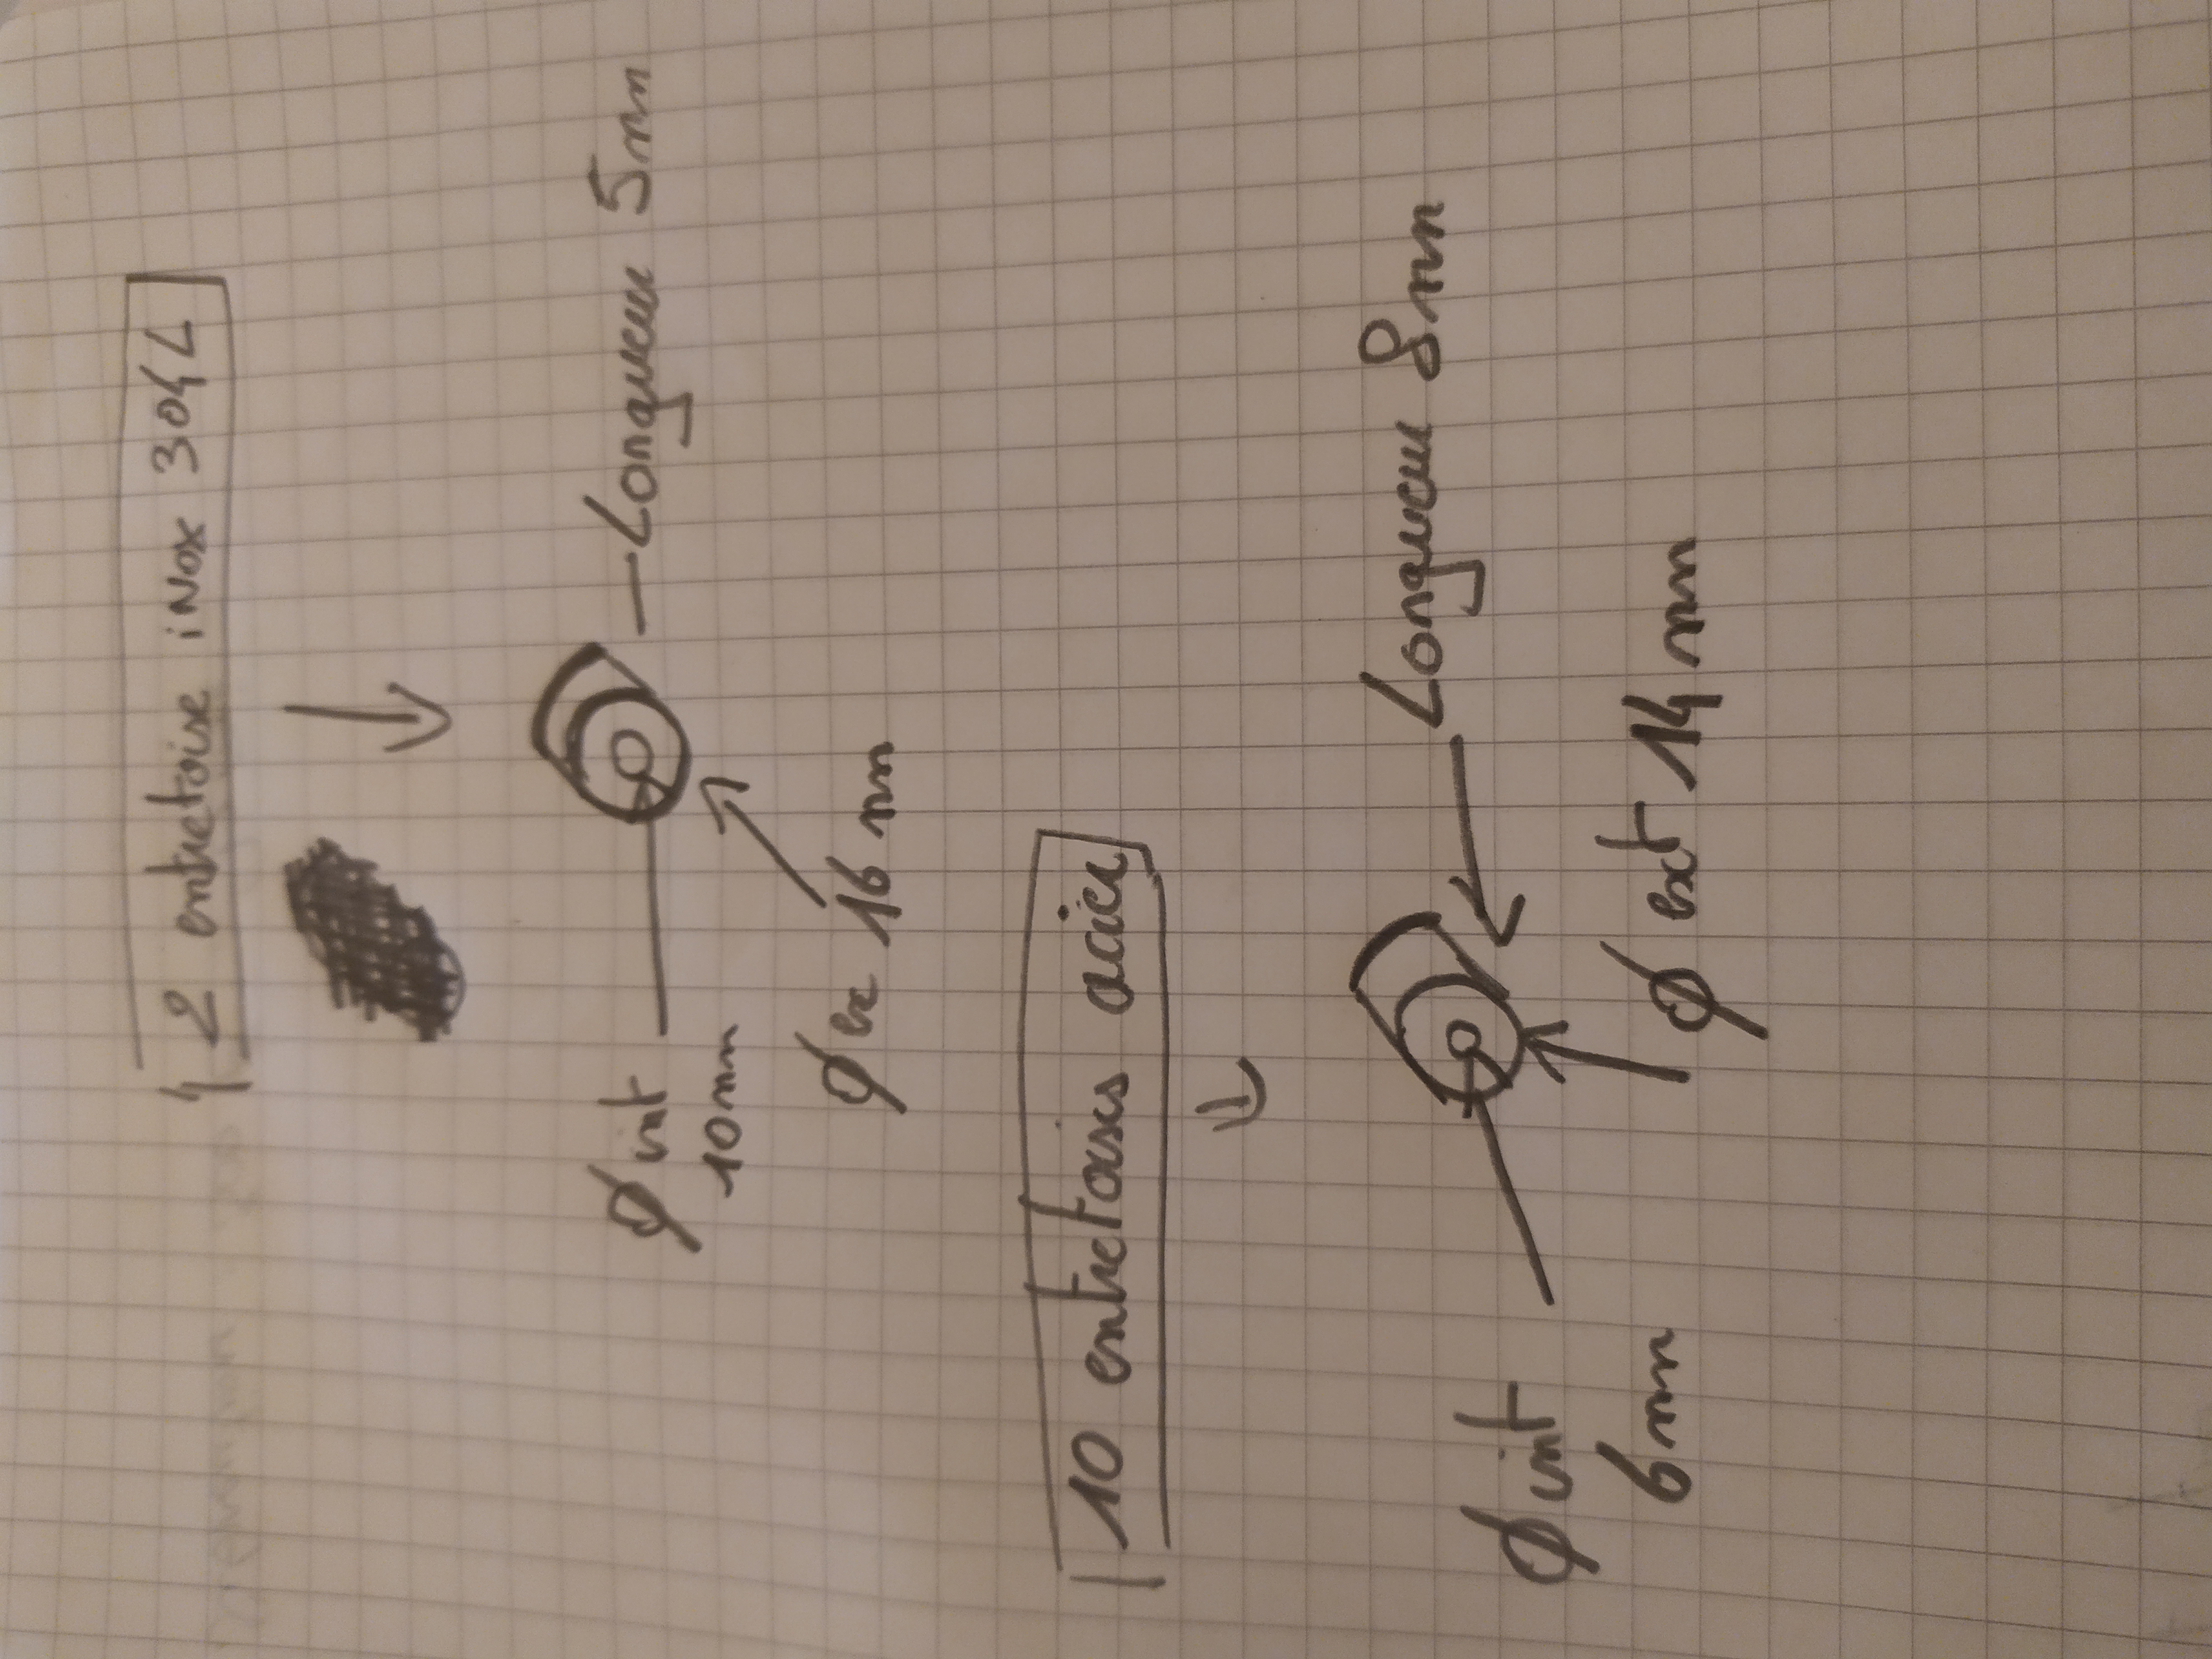 2 entretoise iNox 304L
Longueur 5mm
Ø int
10mm
Ø ex 16 mm
10 entretoises acier
Longueur 8mm
Ø ext 14 mm
Ø int
6mm